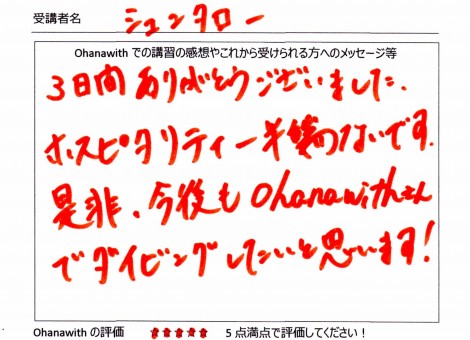 受講者名 シュンタロー
Ohanawith での講習の感想やこれから受けられる方へのメッセージ等
3日間ありがとうございました.
ホスピタリティー半端ないです.
是非、今後もOhanawithさん
でダイビングしたいと思います!
Ohanawith の評価 ★★★★★ 5 点満点で評価してください!